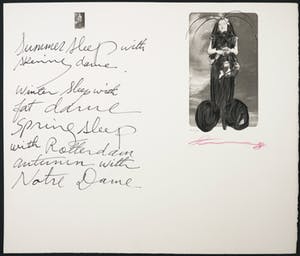 Summer sleep with
skinny dame.
Winter sleep with
fat dame
Spring sleep
with Rotterdam
autumn with
Notre Dame.